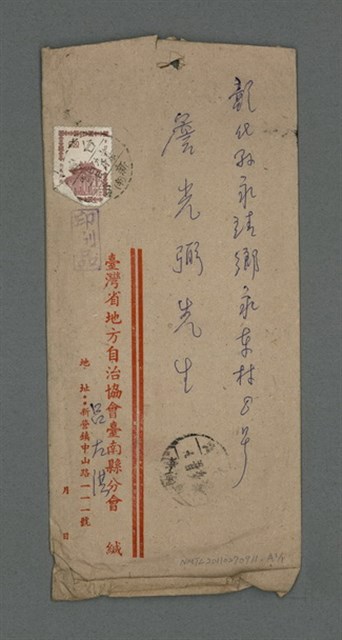 彰化縣永靖鄉永東村8号
詹光弼先生
印刷品
臺灣省地方自治協會臺南縣分會 緘
呂左淇
地址：新營鎮中山路一一一號
月 日